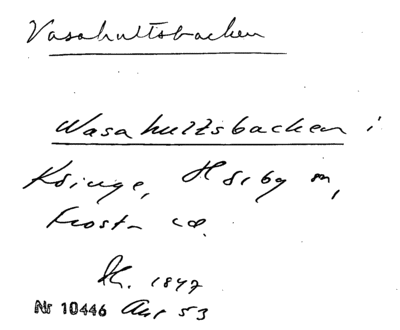 Vasahultsbacken
Wasahultsbacken i
Ksinge, Hörby sn,
Frosta hd.
Sk. 1847
Nr 10446 Aur 53